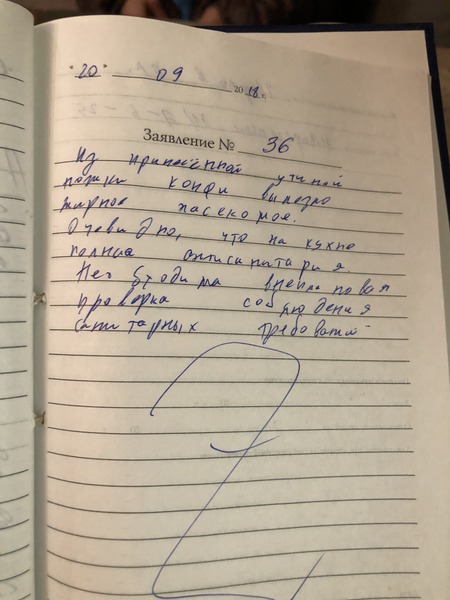 "20" 09 2018 г.
Заявление № 36
Из принесённой утиной
ножки конфи вылезло
жирное насекомое.
Очевидно, что на кухне
полная антисанитария.
Необходима внеплановая
проверка соблюдения
санитарных требований